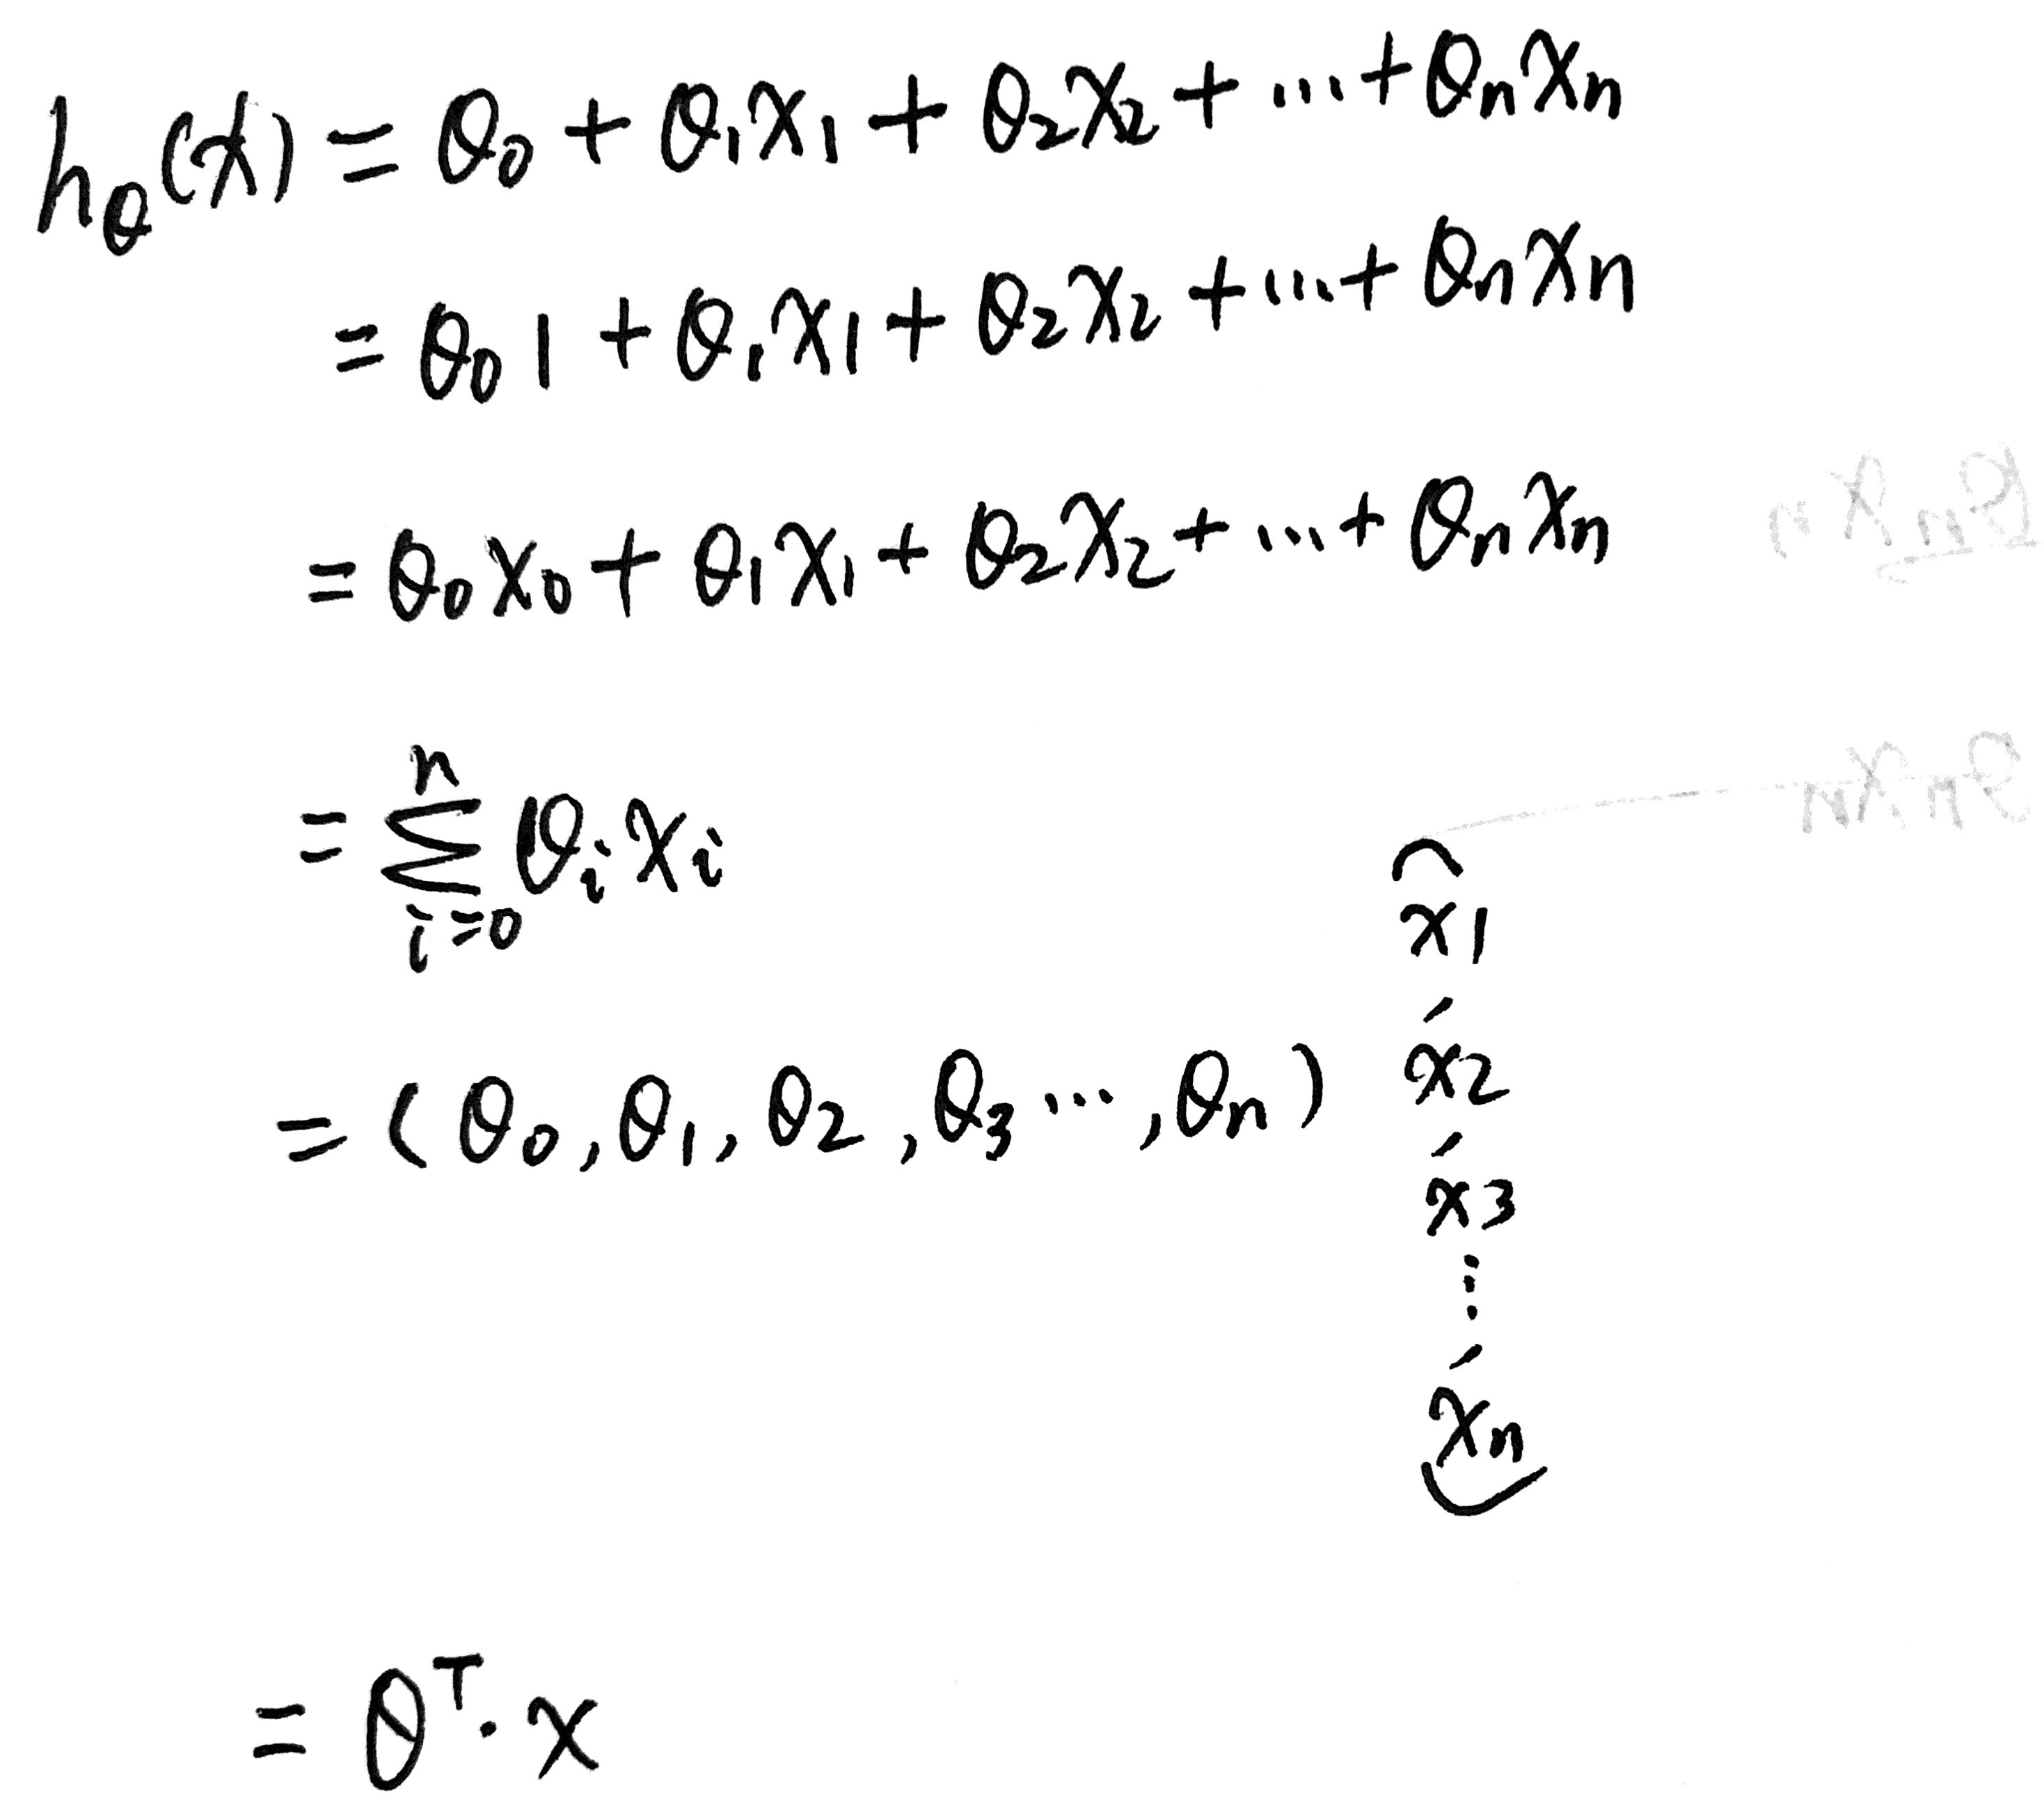 hθ(x) = θ0 + θ1x1 + θ2x2 + ... + θnxn
= θ0 1 + θ1x1 + θ2x2 + ... + θnxn
= θ0x0 + θ1x1 + θ2x2 + ... + θnxn
n
= Σ θixi
i=0
= (θ0, θ1, θ2, θ3 ..., θn)
x1
,
x2
,
x3
⋮
,
xn
= θᵀ · x